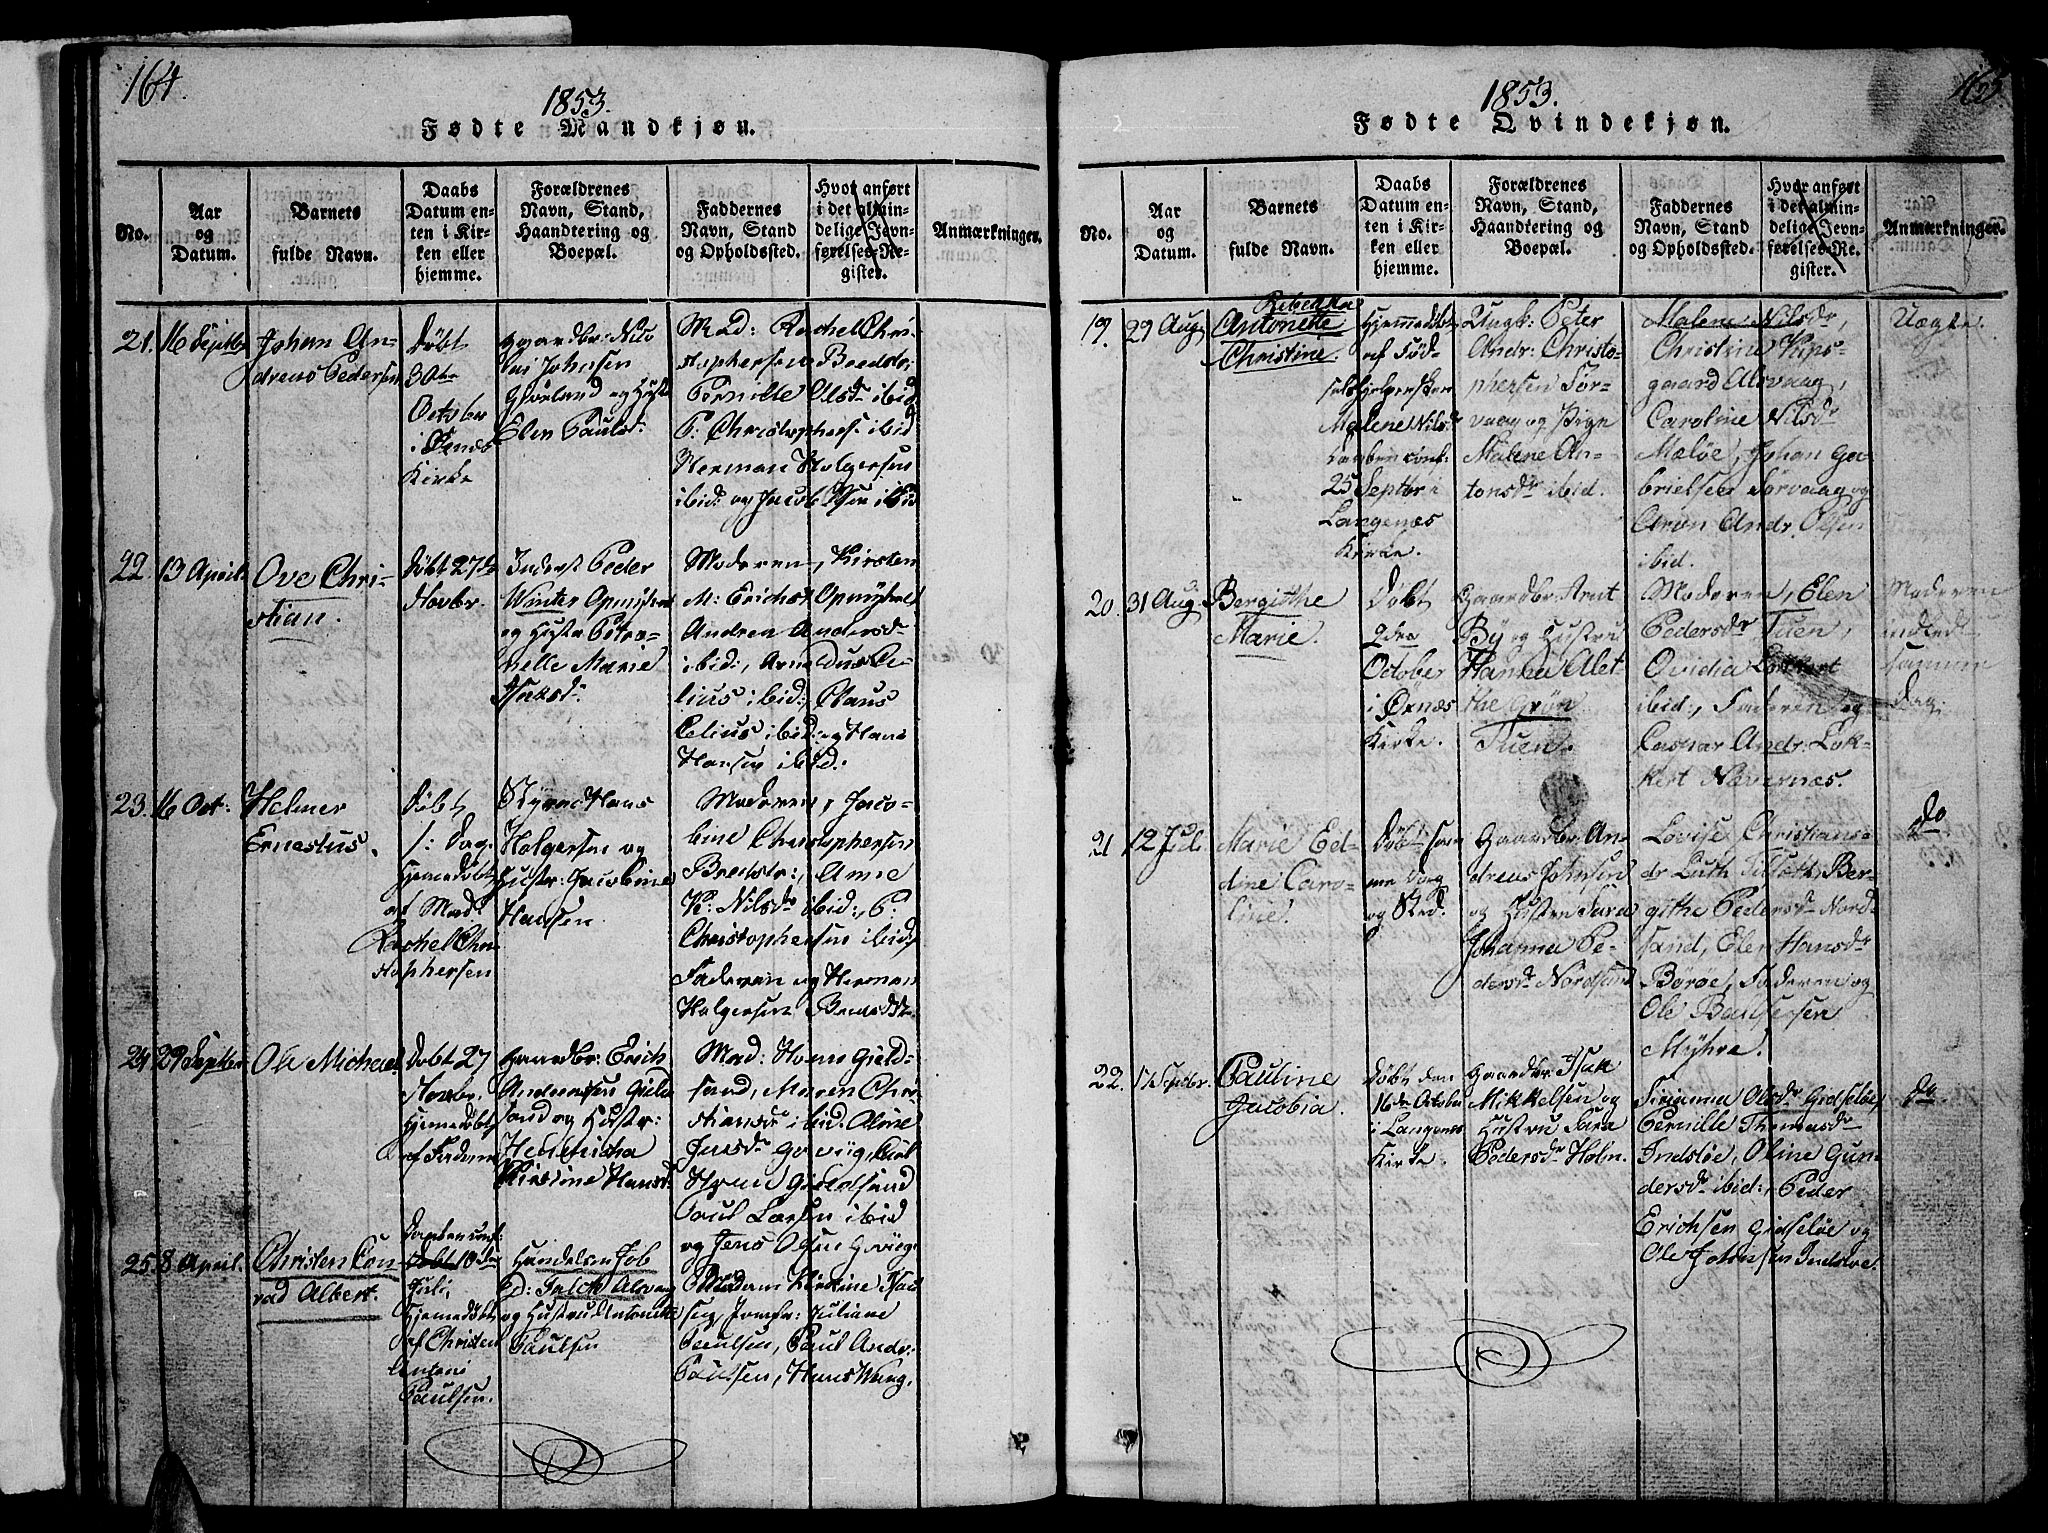 164.
1853.
Fødte Mandkjøn.
No.
Aar
og
Datum.
Barnets
fulde Navn.
Daabs
Datum en-
ten i Kir-
ken eller
hjemme.
Forældrenes
Navn, Stand,
Haandtering og
Boepæl.
Faddernes
Navn, Stand
og Opholdssted.
Hvor anført
i det almin-
delige Jevn-
førelses-Re-
gister.
Anmærkninger.
21. 16 Septbr
Johan An-
dreas Pedersen
Døbt
30te
Octobr
i Ørnæs
Kirke
Gaardbr: Nico
lai Johnsen
og Hustr
Elen Paulsd:
Mad: Rachel Chri-
stophersen Bredstr:
Pernille Olsdr ibid
P: Christophers: ibid
Herman Holgersen
ibid: og Jacob ibid
22. 13 April.
Ove Chri-
stian.
Døbt 27de
Novbr.
Inderst Peder
Winter Opmyhre
og Hustr Petro-
nelle Marie
Isaksd:
Moderen, Kirsten
M: Erichsd Opmyhre
Andrea Andersd
ibid:, Arnoldus Ce-
lius ibid:, Claus
Celius ibid: og Hans
Hansen ibid:
23. 16 Oct:
Helmer
Ernestus.
Døbt
s: Dag
Hjemedøbt
af Mad
Rachel Chri
stophersen
Hans
Holgersen og
Hustr: Jacobine
Hansen.
Moderen, Jaco-
bine Christophersen
Bredstr:, Anne
K: Nilsdr ibid:, P:
Christophersen ibid:
Faderen og Herman
Holgersen Bredstr.
24. 29 Septbr
Ole Michael
Døbt 27
Novbr.
Hjemedøbt
af Faderen
Gaardbr: Erich
Andersen Gield
sand og Hustr:
Hendricha
Kirstine Hansd:
Mad: Horn Gield-
sand, Maren Chri-
stiansdr ibid. Aline
Jensdr Govug, Carl
Horn Gieldsand
Paul Larsen ibid
og Jens Olsen Govug.
25. 8 April.
Christen Con
rad Albert.
Daaben conf:
Døbt 10de
Juli,
Hjemedøbt
af Christen
Antoni
Paulsen.
Handelsm Job
D: Falch Alsvag
og Hustru Antonette
Paulsen
Madam Kirstine
Jomfr: Juliane
Paulsen, Paul Andr:
Paulsen, Hans Wang.
165.
1853.
Fødte Qvindekjøn.
No.
Aar
og
Datum.
Barnets
fulde Navn.
Daabs
Datum en-
ten i Kir-
ken eller
hjemme.
Forældrenes
Navn, Stand,
Haandtering og
Boepæl.
Faddernes
Navn, Stand
og Opholdssted.
Hvor anført
i det almin-
delige Jevn-
førelses-Re-
gister.
Anmærkninger.
19. 29 Aug
Rebecka
Antonette
Christine.
Hjemmedøbt
af Jød-
selshjelpersken
Malene Nilsdr
Daaben conf:
25 Septbr i
Langenæs
Kirke.
Ungk: Peter
Andr: Christo-
phersen Tør-
vaag og Pige
Malene An-
tonsdr ibid.
Malene Nilsdr,
Christine
gaard Alsvaag,
Caroline Nilsdr
Maløe, Johan Ga-
brielsen Tørvaag og
Aron Andr. Olsen
ibid.
Uægte.
20. 31 Aug
Bergithe
Marie.
Døbt
9den
October
i Ørnæs
Kirke.
Gaardbr. Arnt
By og Hustru
Hanna Alet-
the Grøn
Tuen.
Moderen, Elen
Pedersdr Tuen,
Ovidia Lockert
ibid:, Faderen og
Caspar Andr. Lok-
kert Nævernæs.
Moderen
indledt
samme
Dag.
21 12 Jul.
Marie Ed-
dine Caro-
line.
Døbt sam
me Dag
og Sted.
Gaardbr An-
dreas Johnsen
og Hustru Sara
Johanna Pe-
dersdr Nordsand
Lovise Christians-
dr Luth Tilseth, Ber-
githe Pedersdr Nord-
sand, Elen Hansdr
Børøe, Faderen og
Ole Baltsersen
Myhre.
do
22. 17 Septbr.
Pauline
Jacobia.
Døbt den
16de Octobr
i Langenæs
Kirke.
Gaardbr. Isak
Mikkelsen og
Hustru Sara
Pedersdr Holm.
Sirianna Olsdr Gidsløe,
Pernille Thomasdr
Indsløe, Oline Gun-
dersdr ibid:, Peder
Erichsen Gidsløe og
Ole Johnsen Indsløe.
do